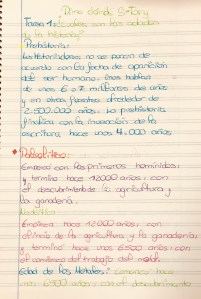 Tarea 1: ¿Cuáles son las edades
de la historia?
Prehistoria:
Los historiadores no se ponen de
acuerdo con la fecha de aparición
del ser humano. Unos hablan
de unos 6 o 7 millones de años
y en otras fuentes alrededor de
2.500.000 años. La prehistoria
finaliza con la invención de la
escritura hace unos 4.000 años
Paleolítico:
Empezó con los primeros homínidos
y termina hace 12000 años, con
el descubrimiento de la agricultura y
la ganadería.
Neolítico
Empieza hace 12000 años, con
el inicio de la agricultura y la ganadería,
y termina hace unos 6500 años, con
el comienzo del trabajo del metal.
Edad de los Metales: comienza hace
unos 6500 años, con el descubrimiento de